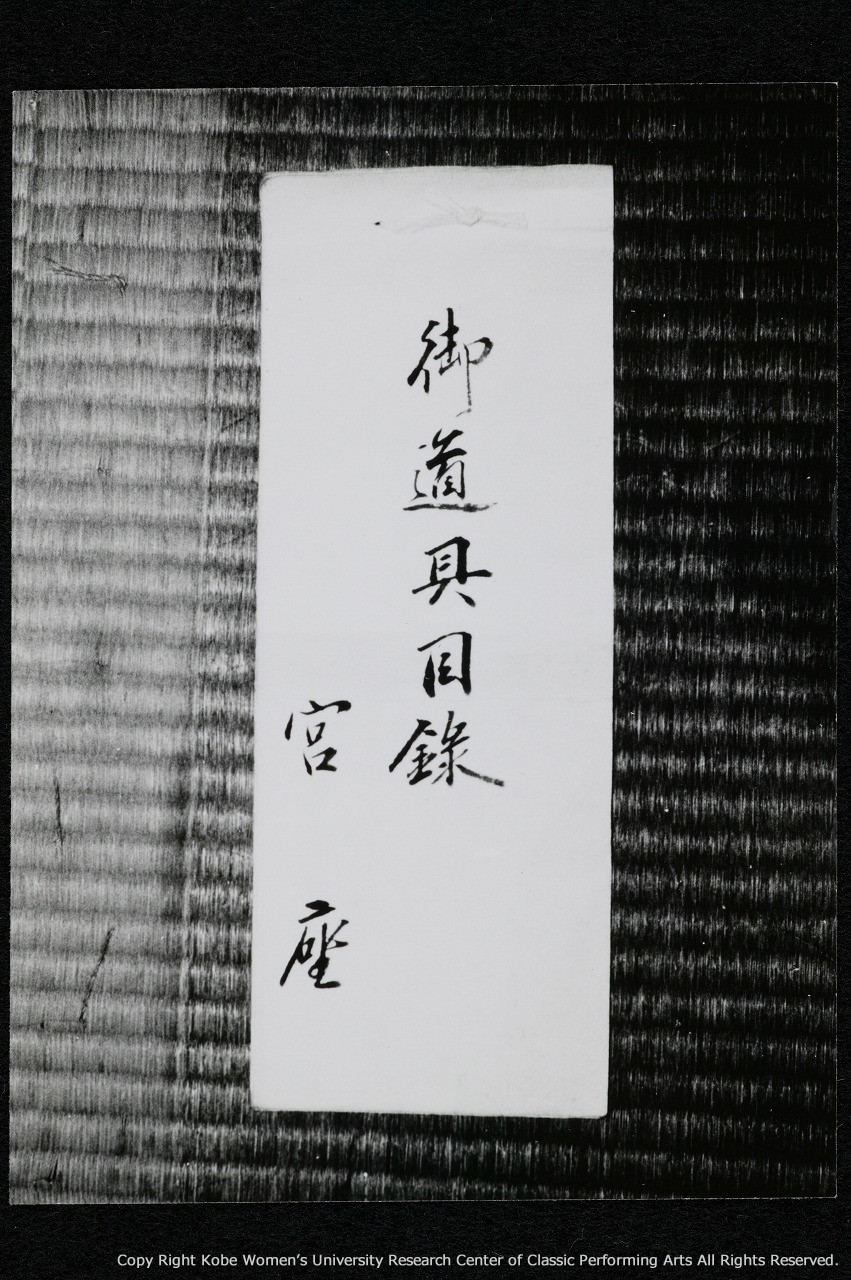 御道具目録
宮座
Copy Right Kobe Women's University Research Center of Classic Performing Arts All Rights Reserved.